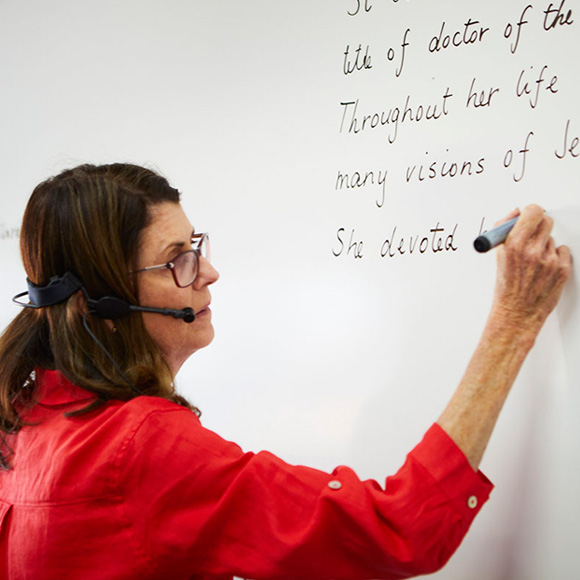 title of doctor of the
Throughout her life
many visions of Je
She devoted h